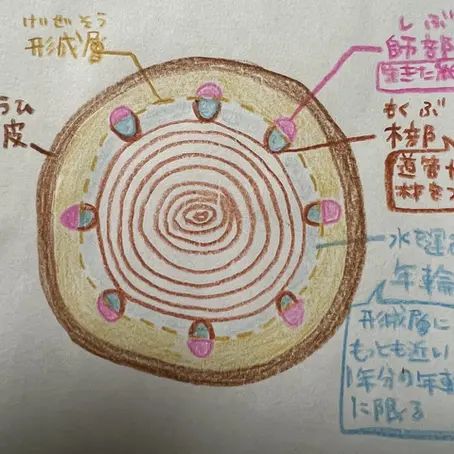 けいせいそう
形成層
しぶ
師部
生きた
うひ
皮
もくぶ
木部
道管
水を運
年輪
形成層に
もっとも近い
1年分の年輪
に限る